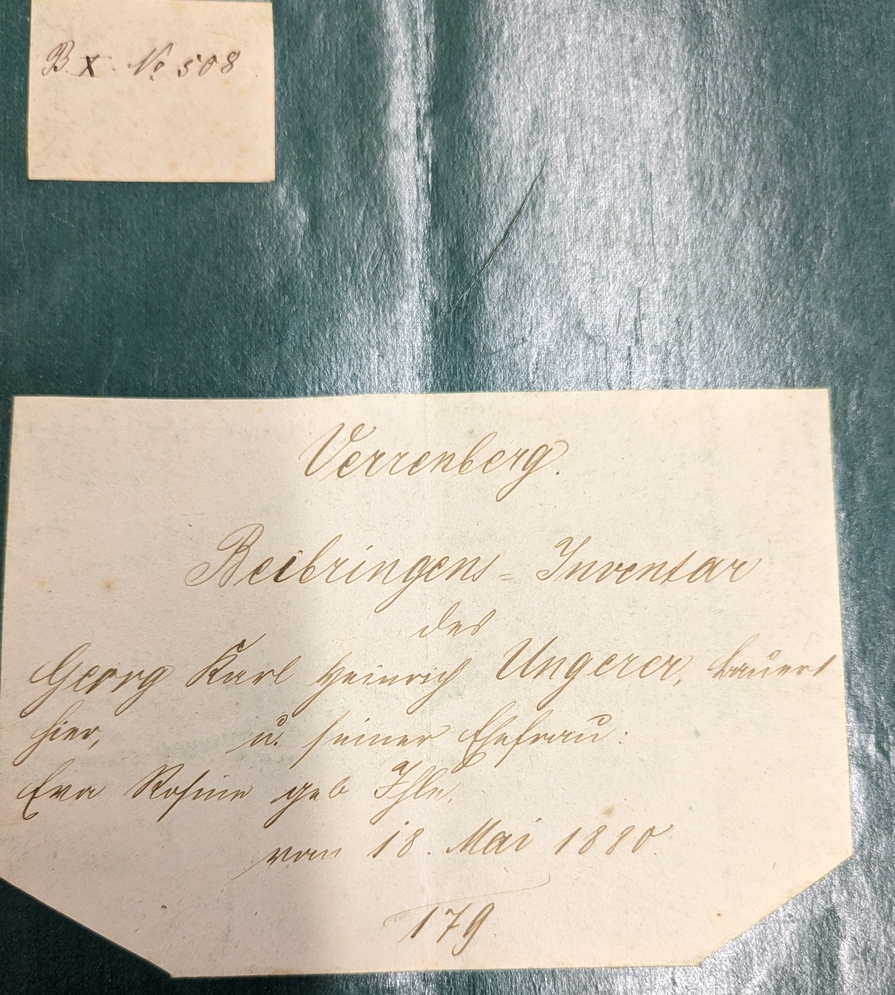 B X. No 508
Verrenberg.
Beibringens-Inventar
des
Georg Karl Heinrich Ungerer, Bauers
hier, u. seiner Ehefrau:
Eva Rosine geb Ihle,
vom 18. Mai 1880.
179